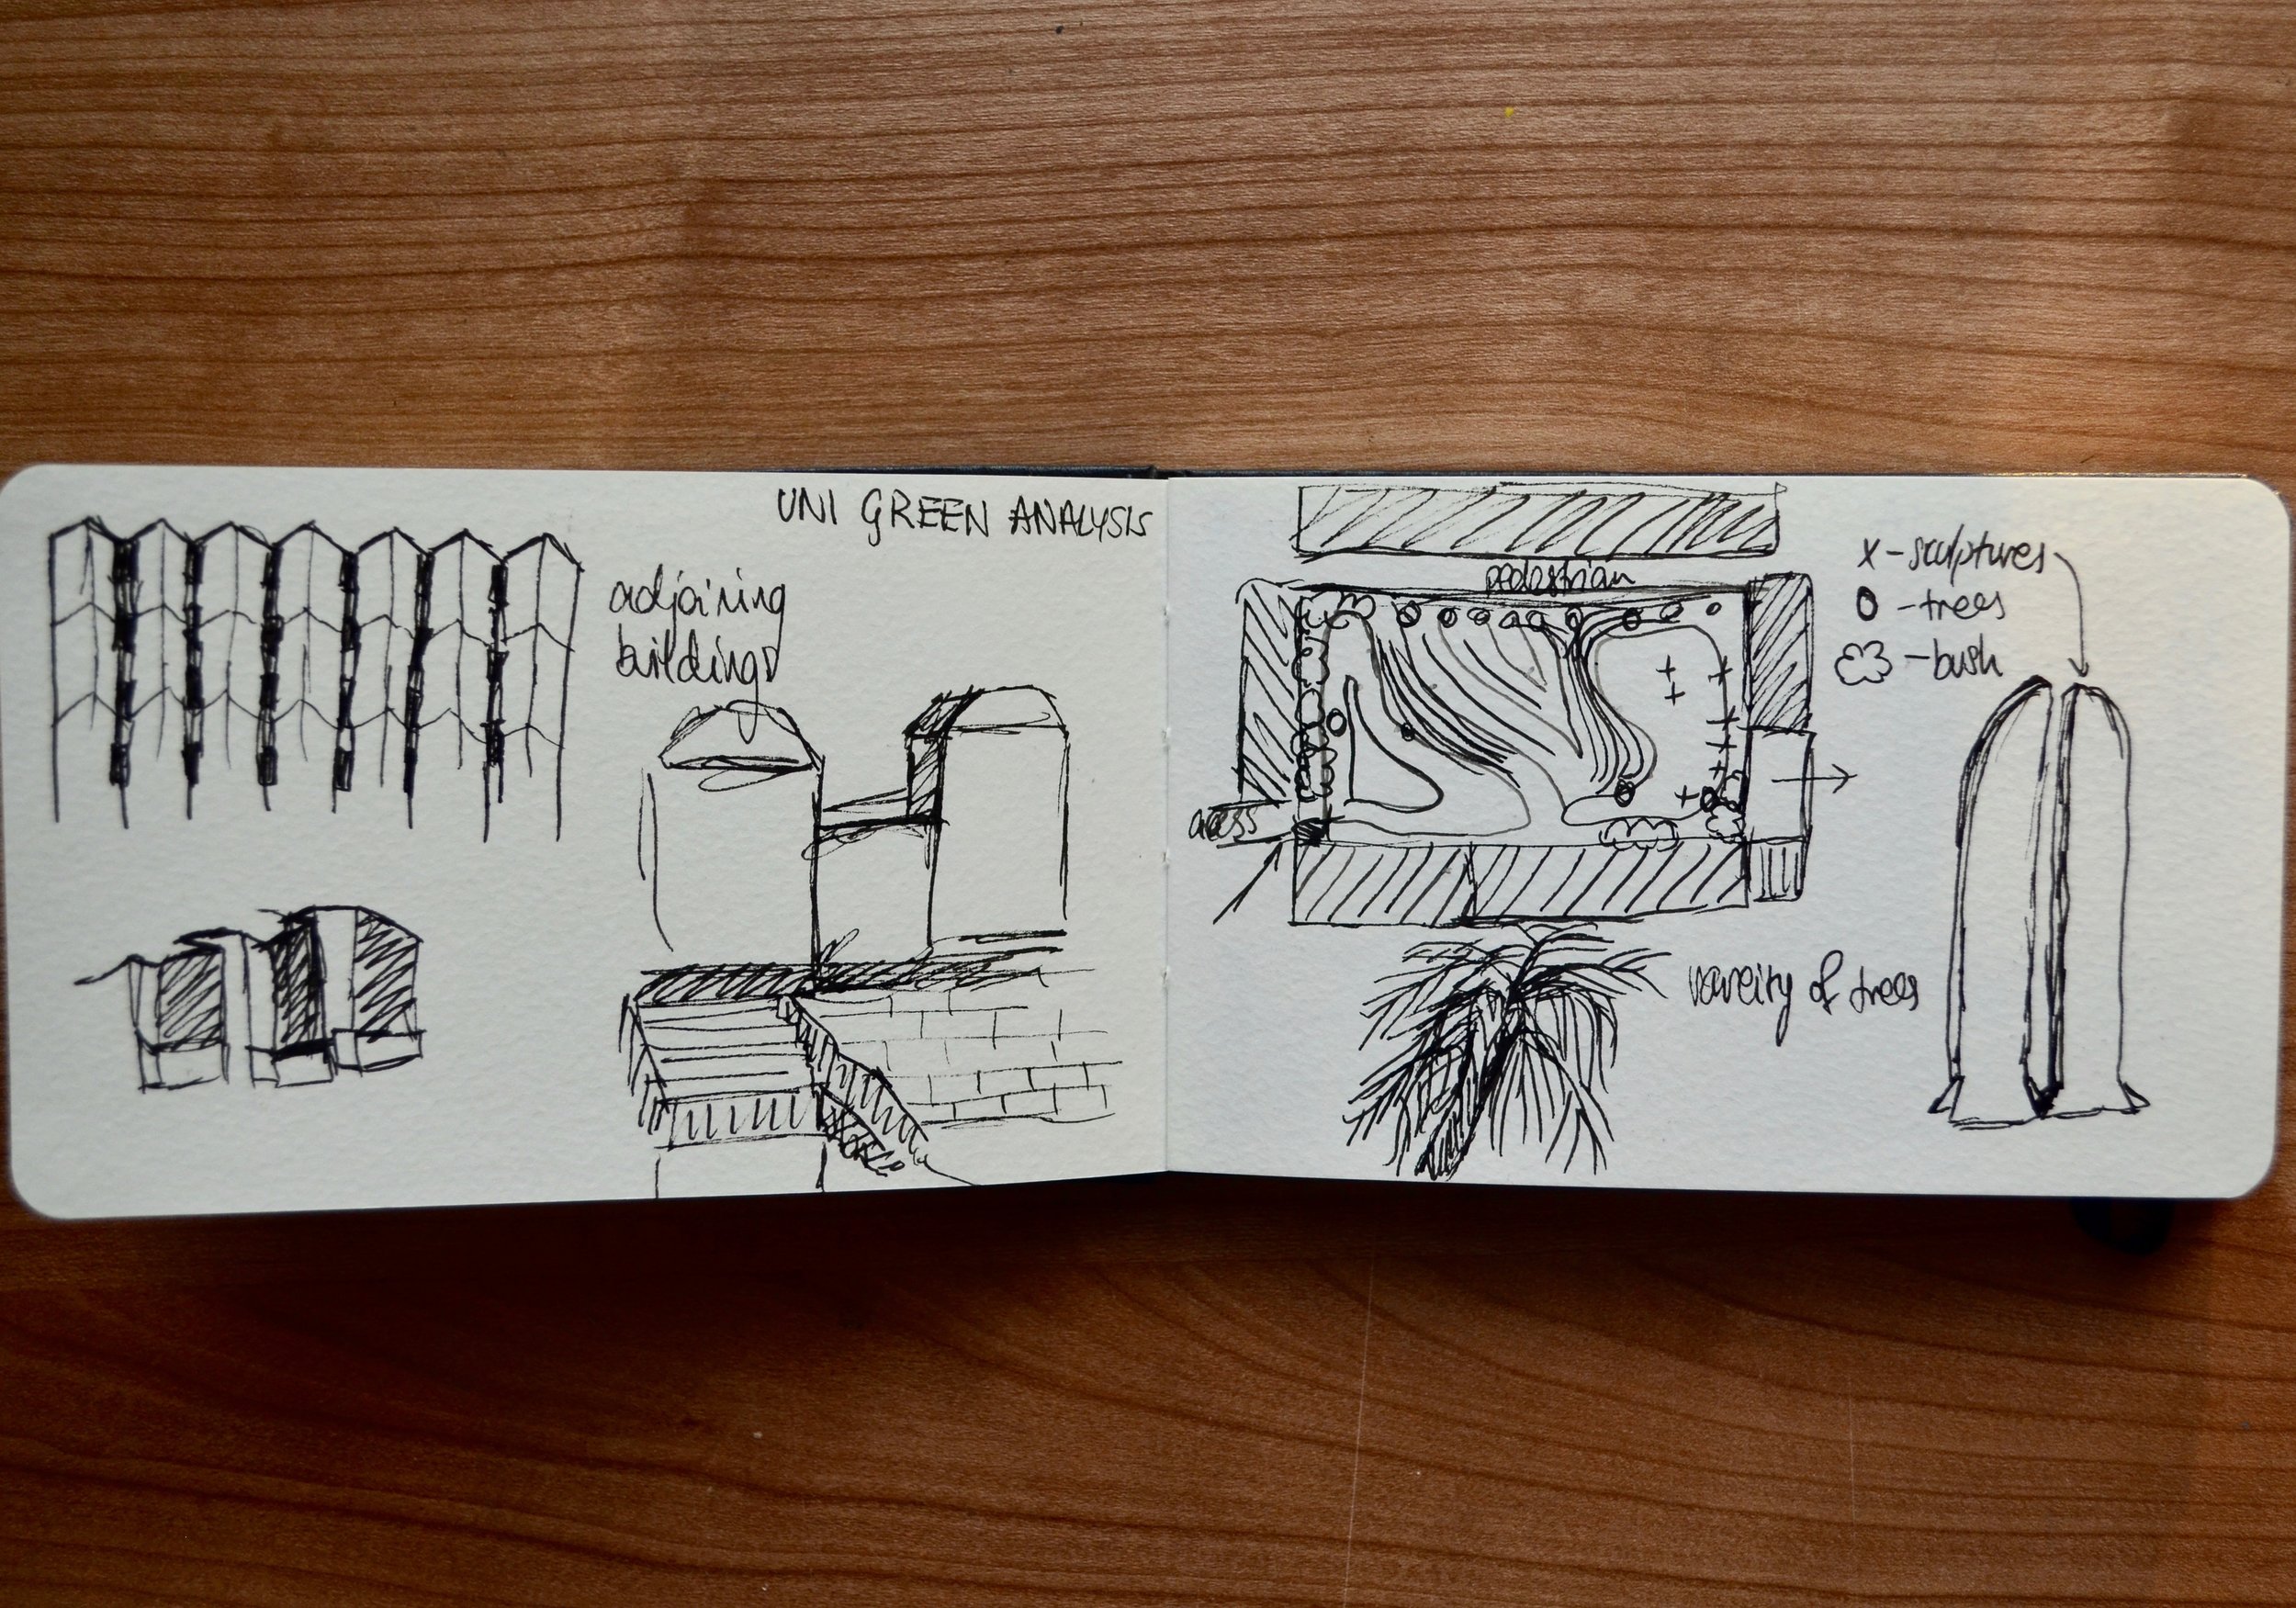 UNI GREEN ANALYSIS
adjoining
buildings
pedestrian
x - sculptures
o - trees
- bush
access
vareity of trees